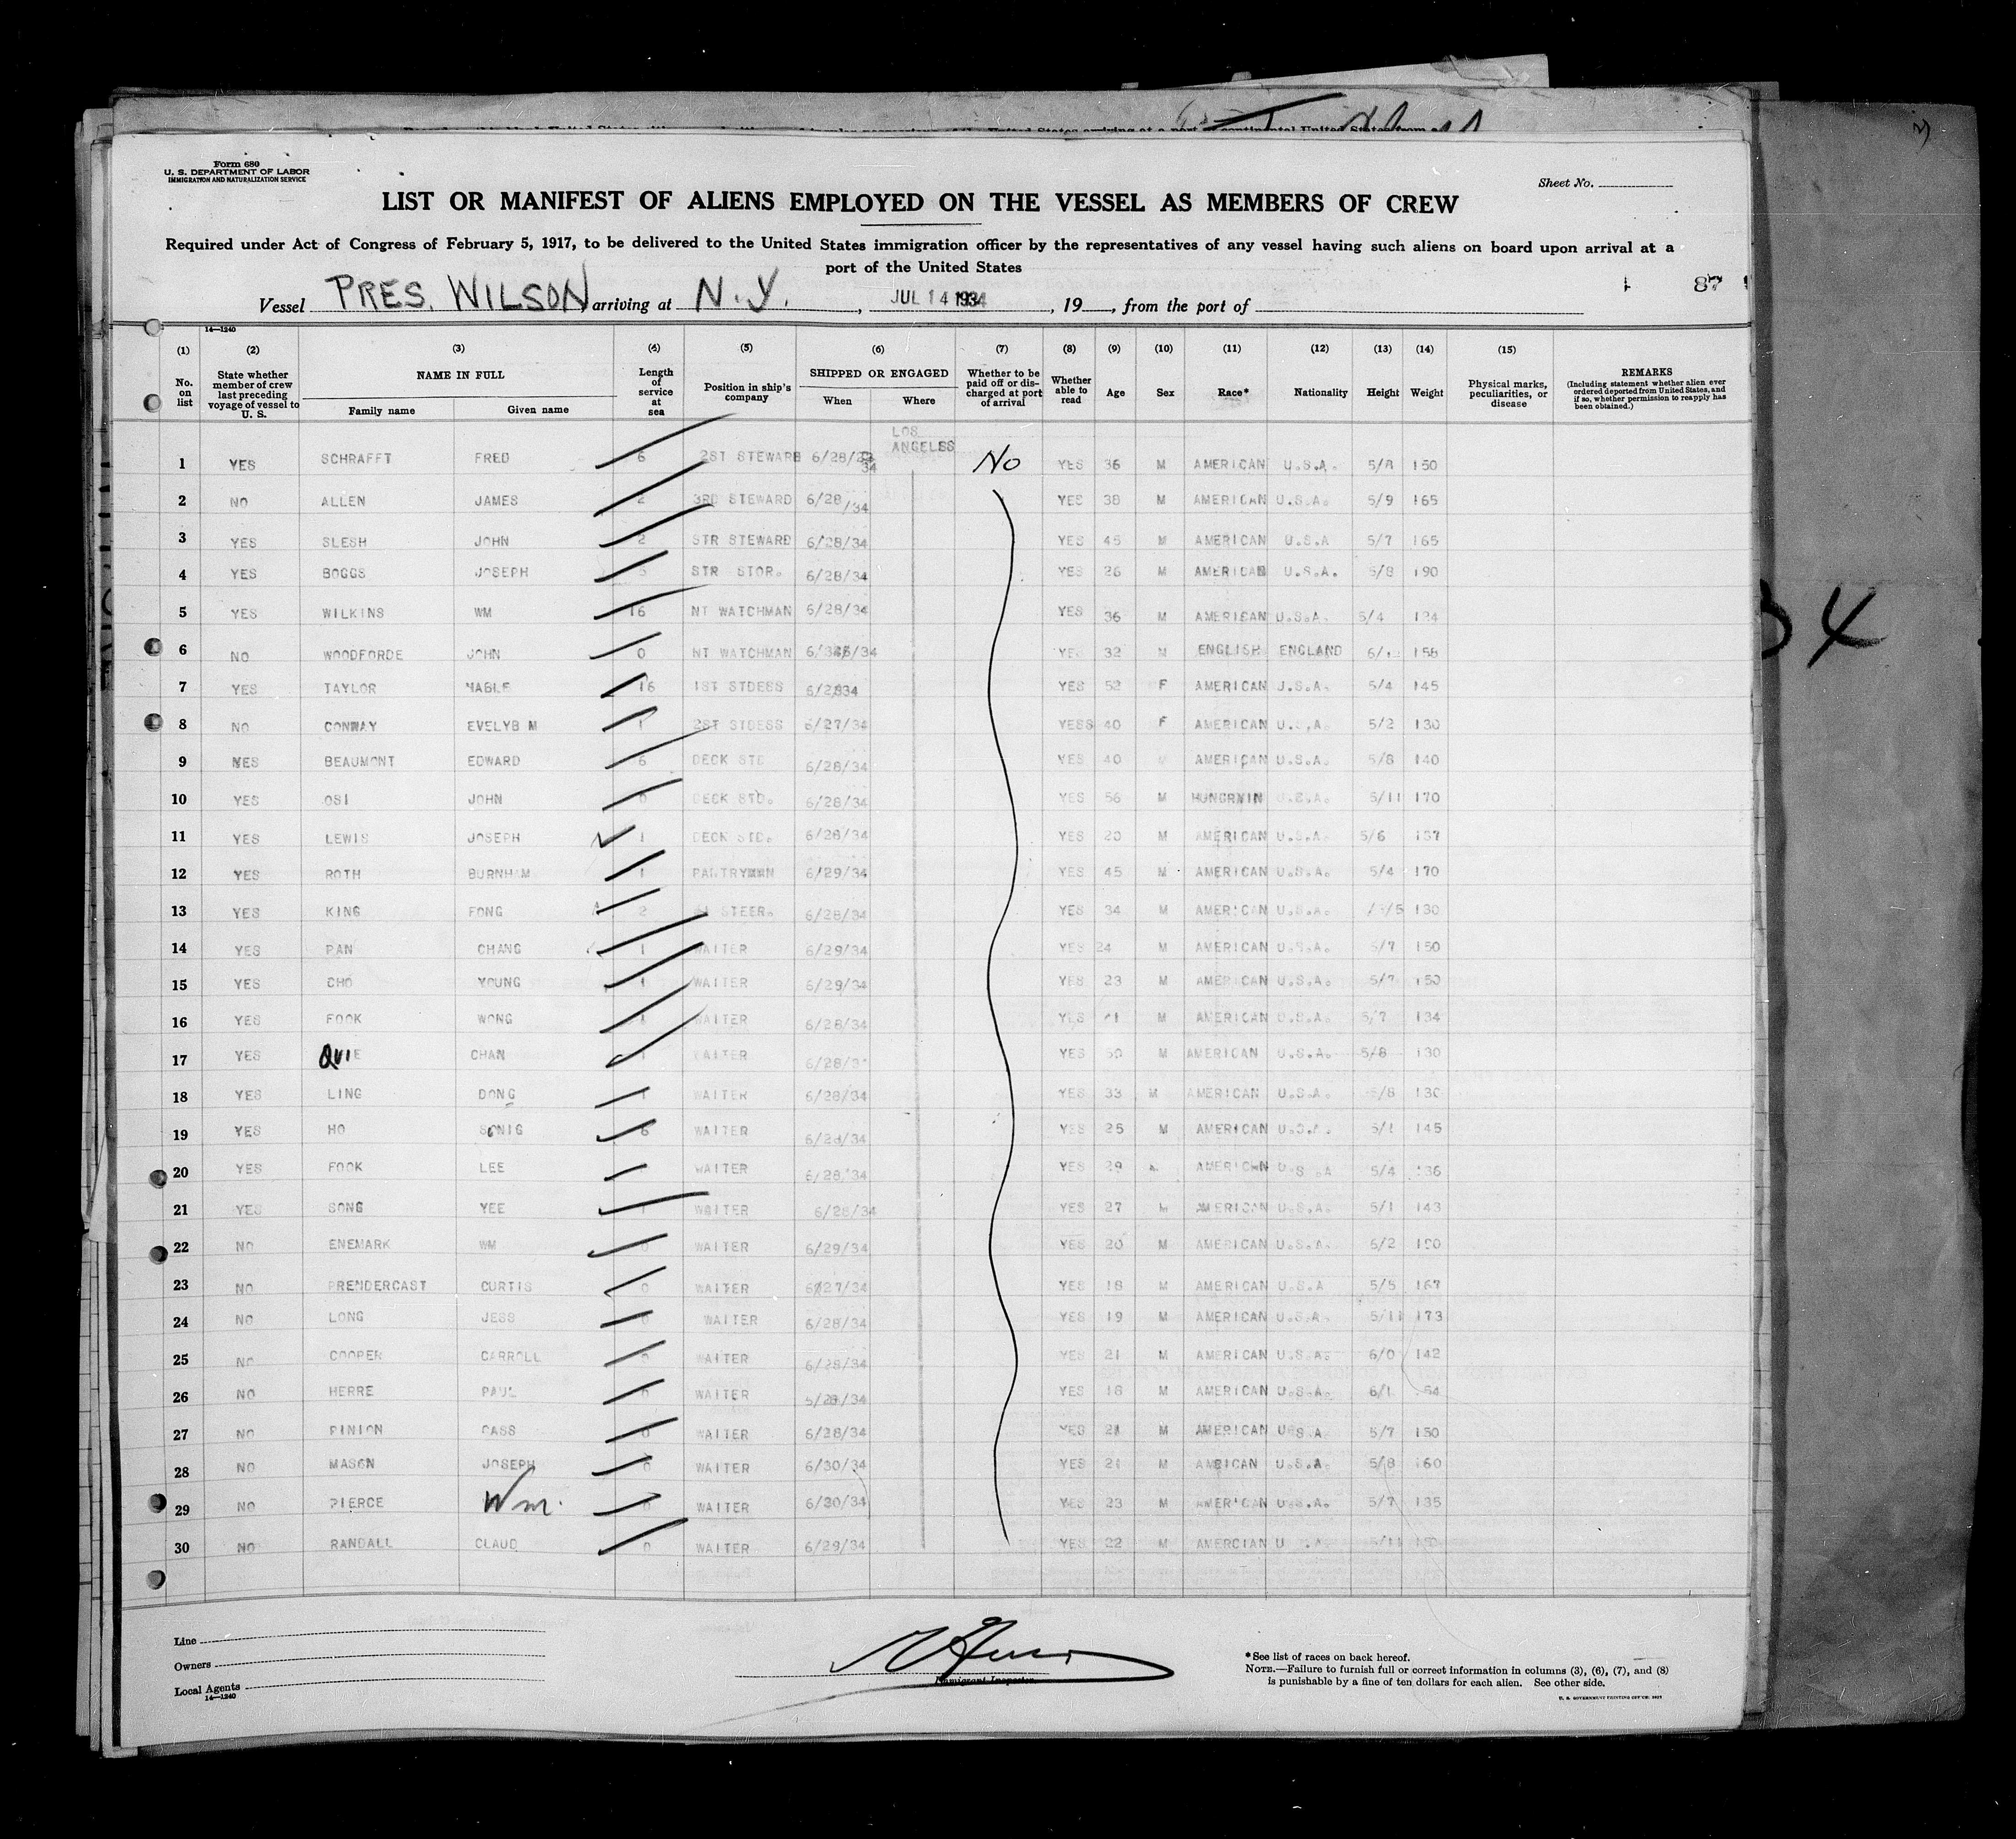 Form 680
U. S. DEPARTMENT OF LABOR
IMMIGRATION AND NATURALIZATION SERVICE
Sheet No.
LIST OR MANIFEST OF ALIENS EMPLOYED ON THE VESSEL AS MEMBERS OF CREW
Required under Act of Congress of February 5, 1917, to be delivered to the United States immigration officer by the representatives of any vessel having such aliens on board upon arrival at a
port of the United States
87
Vessel PRES. WILSON arriving at N.Y. , JUL 14 1934 , 19 , from the port of
14—1240
(1) (2) (3) (4) (5) (6) (7) (8) (9) (10) (11) (12) (13) (14) (15)
No. on list State whether member of crew last preceding voyage of vessel to U. S. NAME IN FULL Family name Given name Length of service at sea Position in ship's company SHIPPED OR ENGAGED When Where Whether to be paid off or discharged at port of arrival Whether able to read Age Sex Race* Nationality Height Weight Physical marks, peculiarities, or disease REMARKS (Including statement whether alien ever ordered deported from United States, and if so, whether permission to reapply has been obtained.)
LOS ANGELES
1 YES SCHRAFFT FRED 6 2ST STEWARD 6/28/34 No YES 36 M AMERICAN U.S.A. 5/8 150
2 NO ALLEN JAMES 2 3RD STEWARD 6/28/34 YES 38 M AMERICAN U.S.A. 5/9 165
3 YES SLESH JOHN 2 STR STEWARD 6/28/34 YES 45 M AMERICAN U.S.A 5/7 165
4 YES BOGGS JOSEPH STR STOR. 6/28/34 YES 26 M AMERICAN U.S.A. 5/8 190
5 YES WILKINS WM 16 NT WATCHMAN 6/28/34 YES 36 M AMERICAN U.S.A. 5/4 124
6 NO WOODFORDE JOHN 0 NT WATCHMAN YES 32 M ENGLISH ENGLAND 158
7 YES TAYLOR MABLE 16 1ST STDESS 6/2834 YES 52 F AMERICAN U.S.A. 5/4 145
8 NO CONWAY EVELYB M 1 2ST STDESS 6/27/34 YESS 40 F AMERICAN U.S.A. 5/2 130
9 YES BEAUMONT EDWARD 6 DECK STD 6/28/34 YES 40 AMERICAN U.S.A. 5/8 140
10 YES OSI JOHN DECK STD. 6/28/34 YES 56 M U.S.A. 5/11 170
11 YES LEWIS JOSEPH 1 DECK STD. 6/28/34 YES 20 M AMERICAN U.S.A 5/6 137
12 YES ROTH BURNHAM 1 PANTRYMAN 6/29/34 YES 45 M AMERICAN U.S.A. 5/4 170
13 YES KING FONG 2 STEER. 6/28/34 YES 34 M AMERICAN U.S.A. 130
14 YES PAN CHANG 1 WAITER 6/29/34 YES 24 M AMERICAN U.S.A. 5/7 150
15 YES CHO YOUNG 1 WAITER 6/29/34 YES 23 M AMERICAN U.S.A. 5/7 150
16 YES FOOK WONG 1 WAITER 6/28/34 YES M AMERICAN U.S.A. 5/7 134
17 YES QUIE CHAN 1 WAITER 6/28/34 YES 50 M AMERICAN U.S.A. 5/8 130
18 YES LING DONG 1 WAITER 6/28/34 YES 33 M AMERICAN U.S.A. 5/8 130
19 YES HO SONIG 6 WAITER 6/28/34 YES 25 M AMERICAN U.S.A. 5/1 145
20 YES FOOK LEE WAITER 6/28/34 YES 29 AMERICAN U S A 5/4 136
21 YES SONG YEE 1 WAITER 6/28/34 YES 27 M AMERICAN U.S.A. 5/1 143
22 NO ENEMARK WM 0 WAITER 6/29/34 YES 20 M AMERICAN U.S.A. 6/2
23 NO PRENDERCAST CURTIS 0 WAITER 6/27/34 YES 18 M AMERICAN U.S.A 5/5 167
24 NO LONG JESS 0 WAITER 6/28/34 YES 19 M AMERICAN U.S.A. 5/11 173
25 NO COOPER CARROLL WAITER 6/28/34 YES 21 M AMERICAN U.S.A. 6/0 142
26 NO HERRE PAUL 0 WAITER 5/28/34 YES 18 M AMERICAN U.S.A. 6/1
27 NO PINION CASS 0 WAITER 6/28/34 YES 21 M AMERICAN U.S.A. 5/7 150
28 NO MASON JOSEPH 0 WAITER 6/30/34 YES 21 M U.S.A 5/8 160
29 NO PIERCE Wm. 0 WAITER 6/30/34 YES 23 M AMERICAN U.S.A. 5/7 135
30 NO RANDALL CLAUD 0 WAITER 6/29/34 YES 22 M AMERCIAN U A 5/11
Line
Owners
Local Agents
14—1240
Immigrant Inspector.
*See list of races on back hereof.
NOTE.—Failure to furnish full or correct information in columns (3), (6), (7), and (8)
is punishable by a fine of ten dollars for each alien. See other side.
34